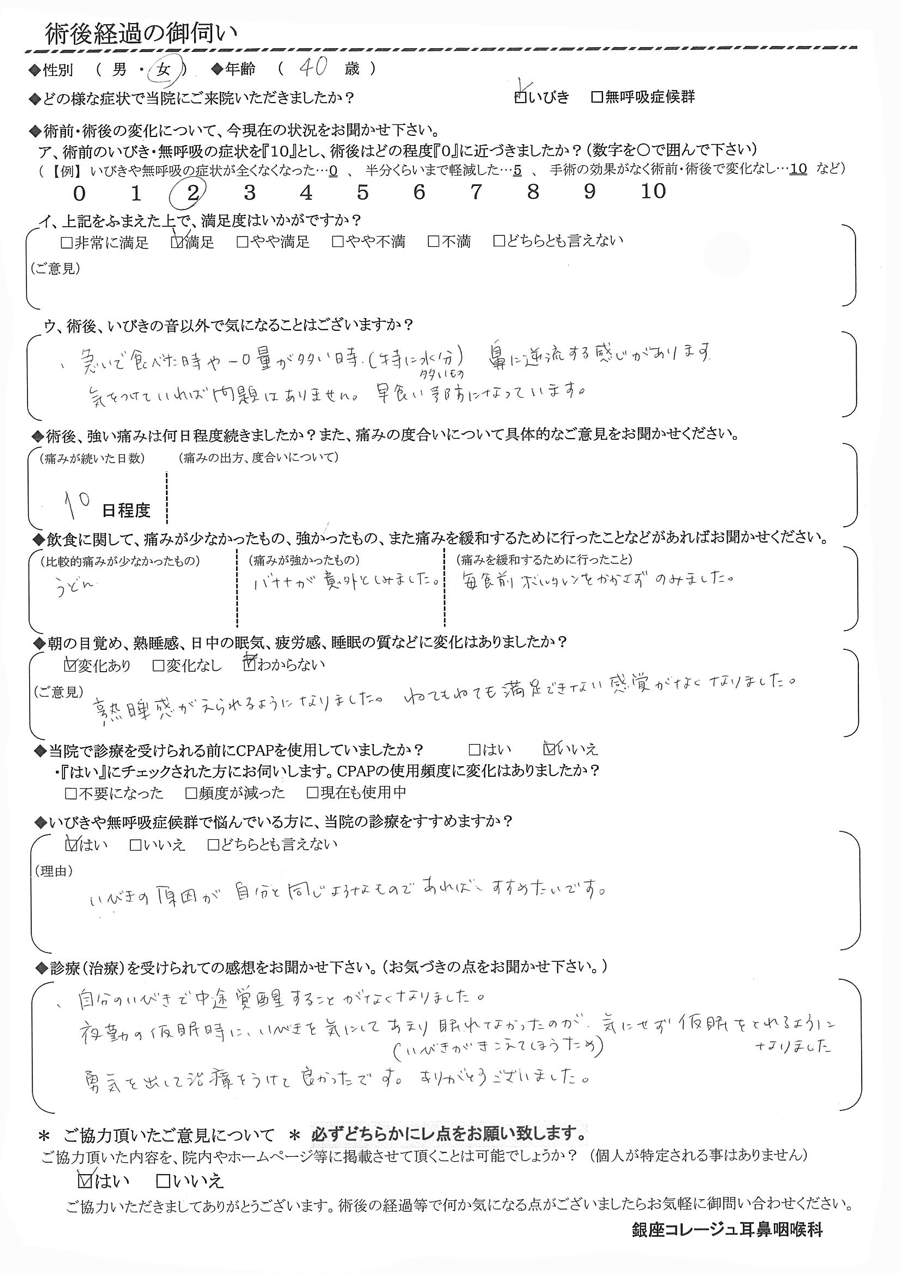 術後経過の御伺い
◆性別 （ 男 ・ 女 ） ◆年齢 （ 40 歳 ）
◆どの様な症状で当院にご来院いただきましたか？ ☑いびき □無呼吸症候群
◆術前・術後の変化について、今現在の状況をお聞かせ下さい。
ア、術前のいびき・無呼吸の症状を『10』とし、術後はどの程度『0』に近づきましたか？（数字を○で囲んで下さい）
（【例】 いびきや無呼吸の症状が全くなくなった…0 、 半分くらいまで軽減した…5 、 手術の効果がなく術前・術後で変化なし…10 など）
0 1 2 3 4 5 6 7 8 9 10
イ、上記をふまえた上で、満足度はいかがですか？
□非常に満足 ☑満足 □やや満足 □やや不満 □不満 □どちらとも言えない
（ご意見）
ウ、術後、いびきの音以外で気になることはございますか？
、急いで食べた時や一口量が多い時、(特に水分) 鼻に逆流する感じがあります
多いもの
気をつけていれば問題はありません。早食い予防になっています。
◆術後、強い痛みは何日程度続きましたか？また、痛みの度合いについて具体的なご意見をお聞かせください。
（痛みが続いた日数） （痛みの出方、度合いについて）
10 日程度
◆飲食に関して、痛みが少なかったもの、強かったもの、また痛みを緩和するために行ったことなどがあればお聞かせください。
（比較的痛みが少なかったもの） （痛みが強かったもの） （痛みを緩和するために行ったこと）
うどん バナナが意外としみました。 毎食前ボルタレンをかかさずのみました。
◆朝の目覚め、熟睡感、日中の眠気、疲労感、睡眠の質などに変化はありましたか？
☑変化あり □変化なし ☑わからない
（ご意見） 熟睡感がえられるようになりました。ねてもねても満足できない感覚がなくなりました。
◆当院で診療を受けられる前にCPAPを使用していましたか？ □はい ☑いいえ
・『はい』にチェックされた方にお伺いします。CPAPの使用頻度に変化はありましたか？
□不要になった □頻度が減った □現在も使用中
◆いびきや無呼吸症候群で悩んでいる方に、当院の診療をすすめますか？
☑はい □いいえ □どちらとも言えない
（理由）
いびきの原因が自分と同じようなものであれば、すすめたいです。
◆診療（治療）を受けられての感想をお聞かせ下さい。（お気づきの点をお聞かせ下さい。）
、自分のいびきで中途覚醒することがなくなりました。
夜勤の仮眠時に、いびきを気にしてあまり眠れなかったのが、気にせず仮眠をとれるように
(いびきがきこえてしまうため) なりました
勇気を出して治療をうけて良かったです。ありがとうございました。
＊ ご協力頂いたご意見について ＊ 必ずどちらかにレ点をお願い致します。
ご協力頂いた内容を、院内やホームページ等に掲載させて頂くことは可能でしょうか？ （個人が特定される事はありません）
☑はい □いいえ
ご協力いただきましてありがとうございます。術後の経過等で何か気になる点がございましたらお気軽に御問い合わせください。
銀座コレージュ耳鼻咽喉科